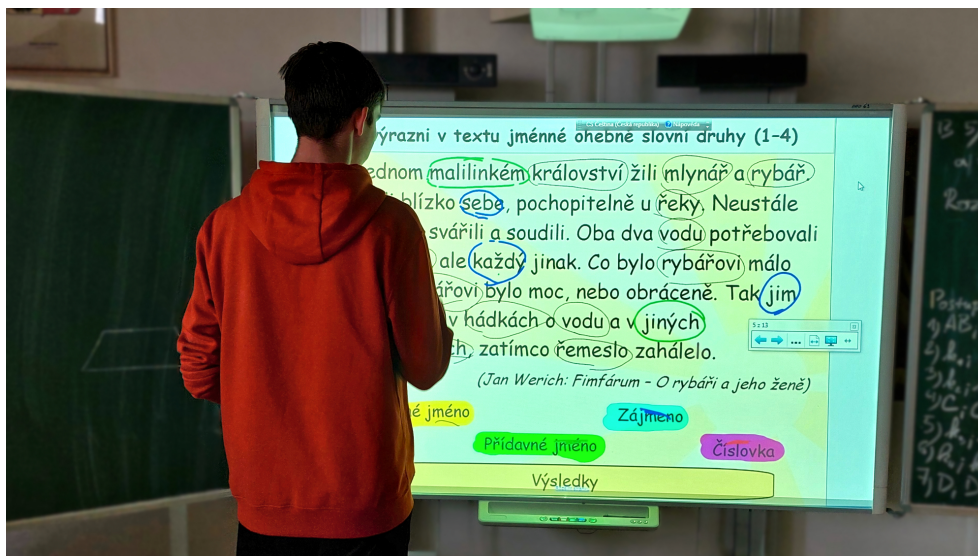 CS Čeština (Česká republika) Nápověda
výrazni v textu jménné ohebné slovní druhy (1-4)
ednom malilinkém království žili mlynář a rybář.
blízko sebe, pochopitelně u řeky. Neustále
svářili a soudili. Oba dva vodu potřebovali
ale každý jinak. Co bylo rybářovi málo
ářovi bylo moc, nebo obráceně. Tak jim
v hádkách o vodu a v jiných
ch, zatímco řemeslo zahálelo.
5 z 13
(Jan Werich: Fimfárum – O rybáři a jeho ženě)
é jméno
Zájmeno
Přídavné jméno
Číslovka
Výsledky
Postup
1) AB